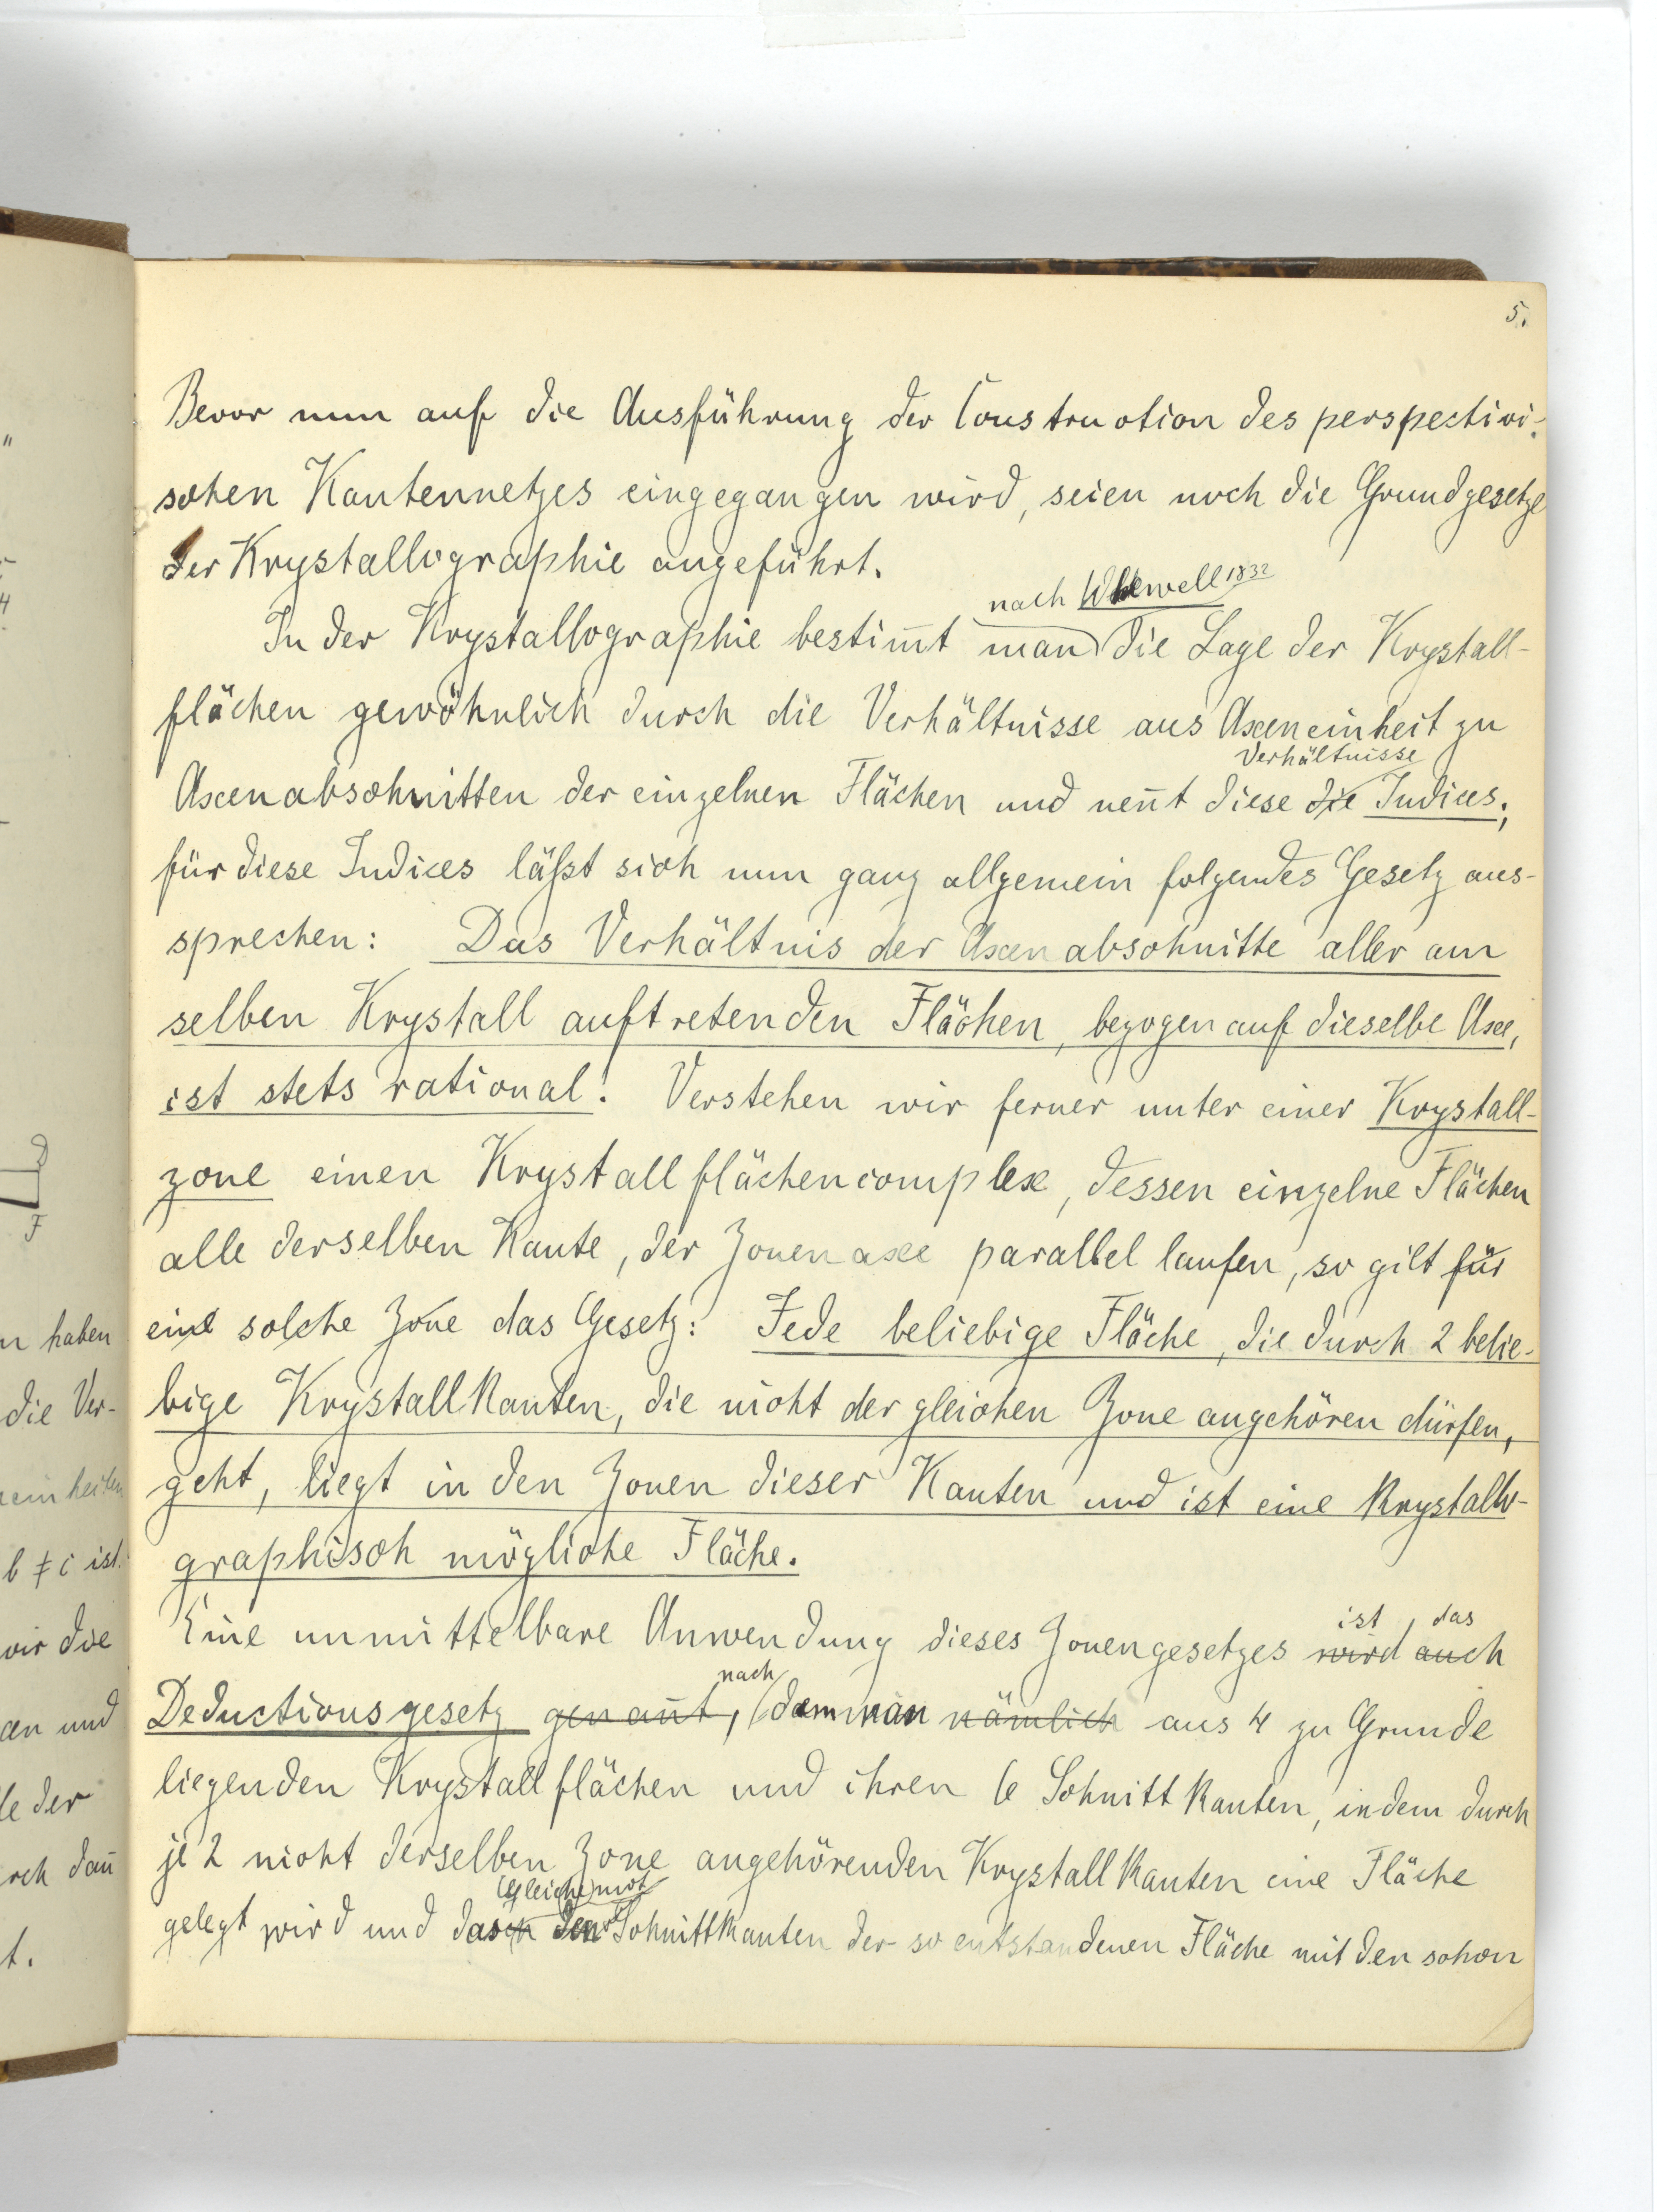 5.
Bevor nun auf die Ausführung der Construction des perspectivi-
schen Kantennetzes eingegangen wird, seien noch die Grundgesetze
der Krystallographie angeführt.
nach Whewell 1832
In der Krystallographie bestim̄t man die Lage der Krystall-
flächen gewöhnlich durch die Verhältnisse aus Axeneinheit zu
Verhältnisse
Axenabschnitten der einzelnen Flächen und nen̄t diese die Indices;
für diese Indices läßt sich nun ganz allgemein folgendes Gesetz aus-
sprechen: Das Verhältnis der Axenabschnitte aller am
selben Krystall auftretenden Flächen, bezogen auf dieselbe Axe,
ist stets rational! Verstehen wir ferner unter einer Krystall-
zone einen Krystallflächencomplex, dessen einzelne Flächen
alle derselben Kante, der Zonenaxe parallel laufen, so gilt für
eine solche Zone das Gesetz: Jede beliebige Fläche, die durch 2 belie-
bige Krystallkanten, die nicht der gleichen Zone angehören dürfen,
geht, liegt in den Zonen dieser Kanten und ist eine krystallo-
graphisch mögliche Fläche.
ist das
Eine unmittelbare Anwendung dieses Zonengesetzes wird auch
nach
Deductionsgesetz genan̄t, dem man nämlich aus 4 zu Grunde
liegenden Krystallflächen und ihren 6 Schnittkanten, indem durch
je 2 nicht derselben Zone angehörenden Krystallkanten eine Fläche
Gleiche mit
gelegt wird und das den Schnittkanten der so entstandenen Fläche mit den schon
n haben
die Ver-
einheiten
b ≠ c ist.
wir die
en und
le der
rch dan̄
t.